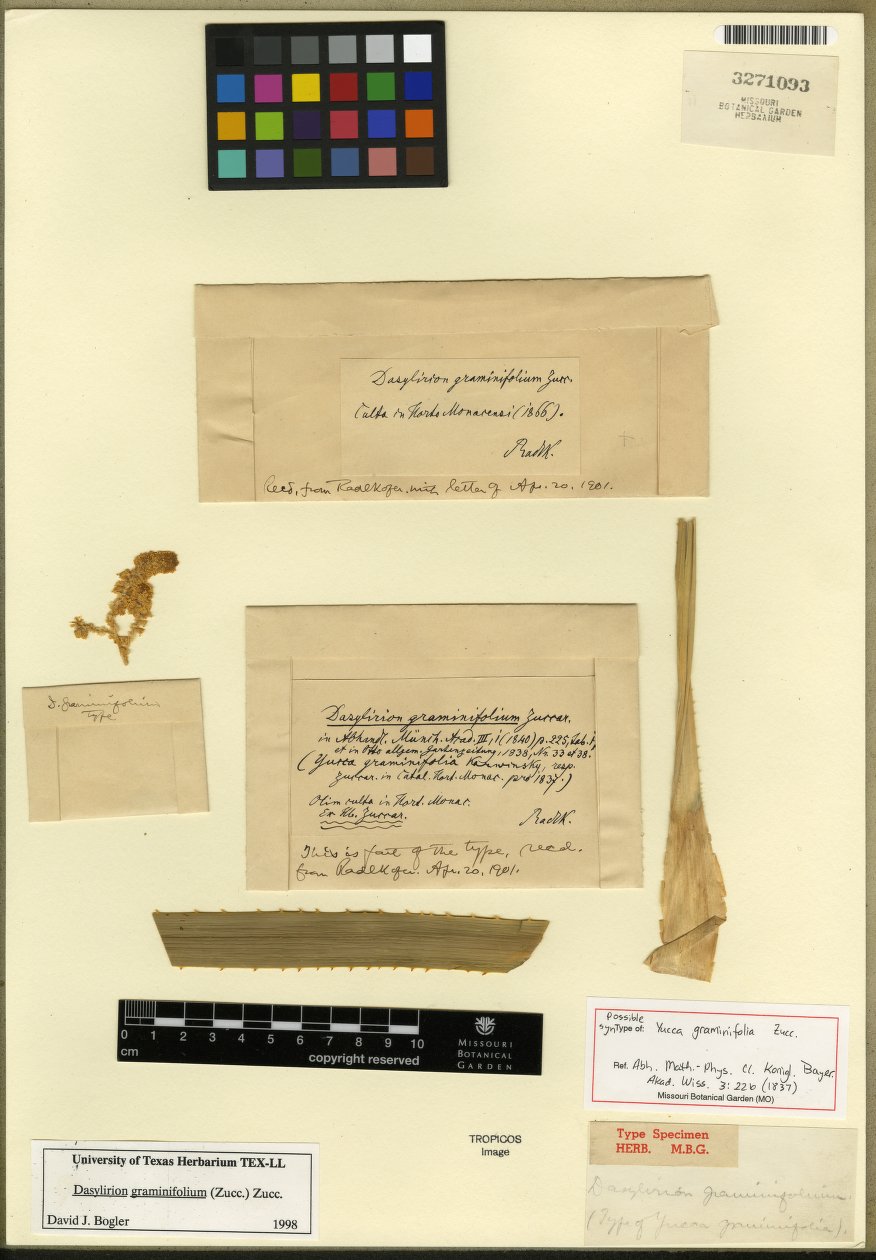 3271093
MISSOURI
BOTANICAL GARDEN
HERBARIUM
Dasylirion graminifolium Zucc.
Culta in Horto Monacensi (1866).
Radlk.
Recd. from Radlkofer with letter of Apr. 20, 1901.
D. graminifolium
type
Dasylirion graminifolium Zuccar.
in Abhandl. Münch. Acad. III, i (1840) p. 225, tab. i,
et in Otto allgem. Gartenzeitung, 1838, No. 33 et 38.
(Yucca graminifolia Karwinsky, resp.
Zuccar. in Catal. Hort. Monac. pro 1837.)
Olim culta in Hort. Monac.
Ex Hb. Zuccar.
Radlk.
This is part of the type, recd.
from Radlkofer. Apr. 20, 1901.
0 1 2 3 4 5 6 7 8 9 10
cm
copyright reserved
MISSOURI
BOTANICAL
GARDEN
Possible
synType of: Yucca graminifolia Zucc.
Ref. Abh. Math.-Phys. Cl. Konigl. Bayer.
Akad. Wiss. 3: 226 (1837)
Missouri Botanical Garden (MO)
TROPICOS
Image
Type Specimen
HERB. M.B.G.
Dasylirion graminifolium.
(Type of Yucca graminifolia).
University of Texas Herbarium TEX-LL
Dasylirion graminifolium (Zucc.) Zucc.
David J. Bogler 1998